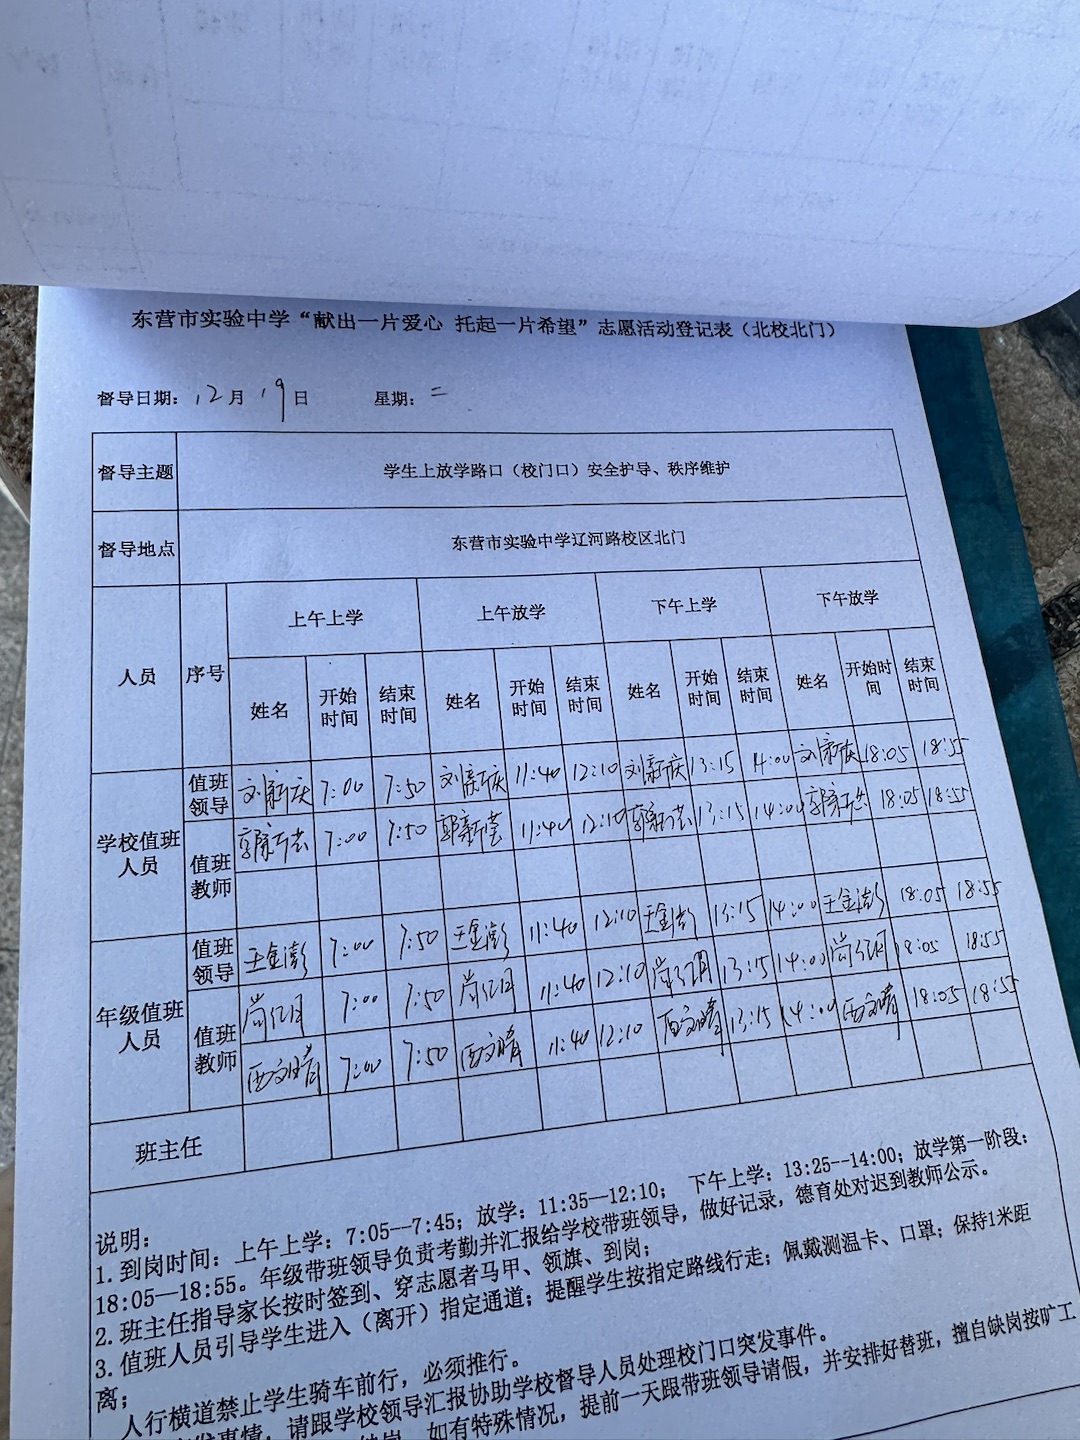 东营市实验中学“献出一片爱心 托起一片希望”志愿活动登记表（北校北门）
督导日期：12月19日 星期：二
督导主题 学生上放学路口（校门口）安全护导、秩序维护
督导地点 东营市实验中学辽河路校区北门
人员 序号 上午上学 上午放学 下午上学 下午放学
姓名 开始时间 结束时间 姓名 开始时间 结束时间 姓名 开始时间 结束时间 姓名 开始时间 结束时间
学校值班人员
值班领导 刘新庆 7:00 7:50 刘新庆 11:40 12:10 刘新庆 13:15 14:00 刘新庆 18:05 18:55
值班教师 郭新芸 7:00 7:50 郭新芸 11:40 12:10 郭新芸 13:15 14:00 郭新芸 18:05 18:55
年级值班人员
值班领导 王金澎 7:00 7:50 王金澎 11:40 12:10 王金澎 13:15 14:00 王金澎 18:05 18:55
值班教师 尚行月 7:00 7:50 尚行月 11:40 12:10 尚行月 13:15 14:00 尚行月 18:05 18:55
西文晴 7:00 7:50 西文晴 11:40 12:10 西文晴 13:15 14:00 西文晴 18:05 18:55
班主任
说明：
1. 到岗时间：上午上学：7:05--7:45；放学：11:35--12:10； 下午上学：13:25--14:00；放学第一阶段：
18:05--18:55。年级带班领导负责考勤并汇报给学校带班领导，做好记录，德育处对迟到教师公示。
2. 班主任指导家长按时签到、穿志愿者马甲、领旗、到岗；
3. 值班人员引导学生进入（离开）指定通道；提醒学生按指定路线行走；佩戴测温卡、口罩；保持1米距
离；
人行横道禁止学生骑车前行，必须推行。
发事情，请跟学校领导汇报协助学校督导人员处理校门口突发事件。
缺岗，如有特殊情况，提前一天跟带班领导请假，并安排好替班，擅自缺岗按旷工